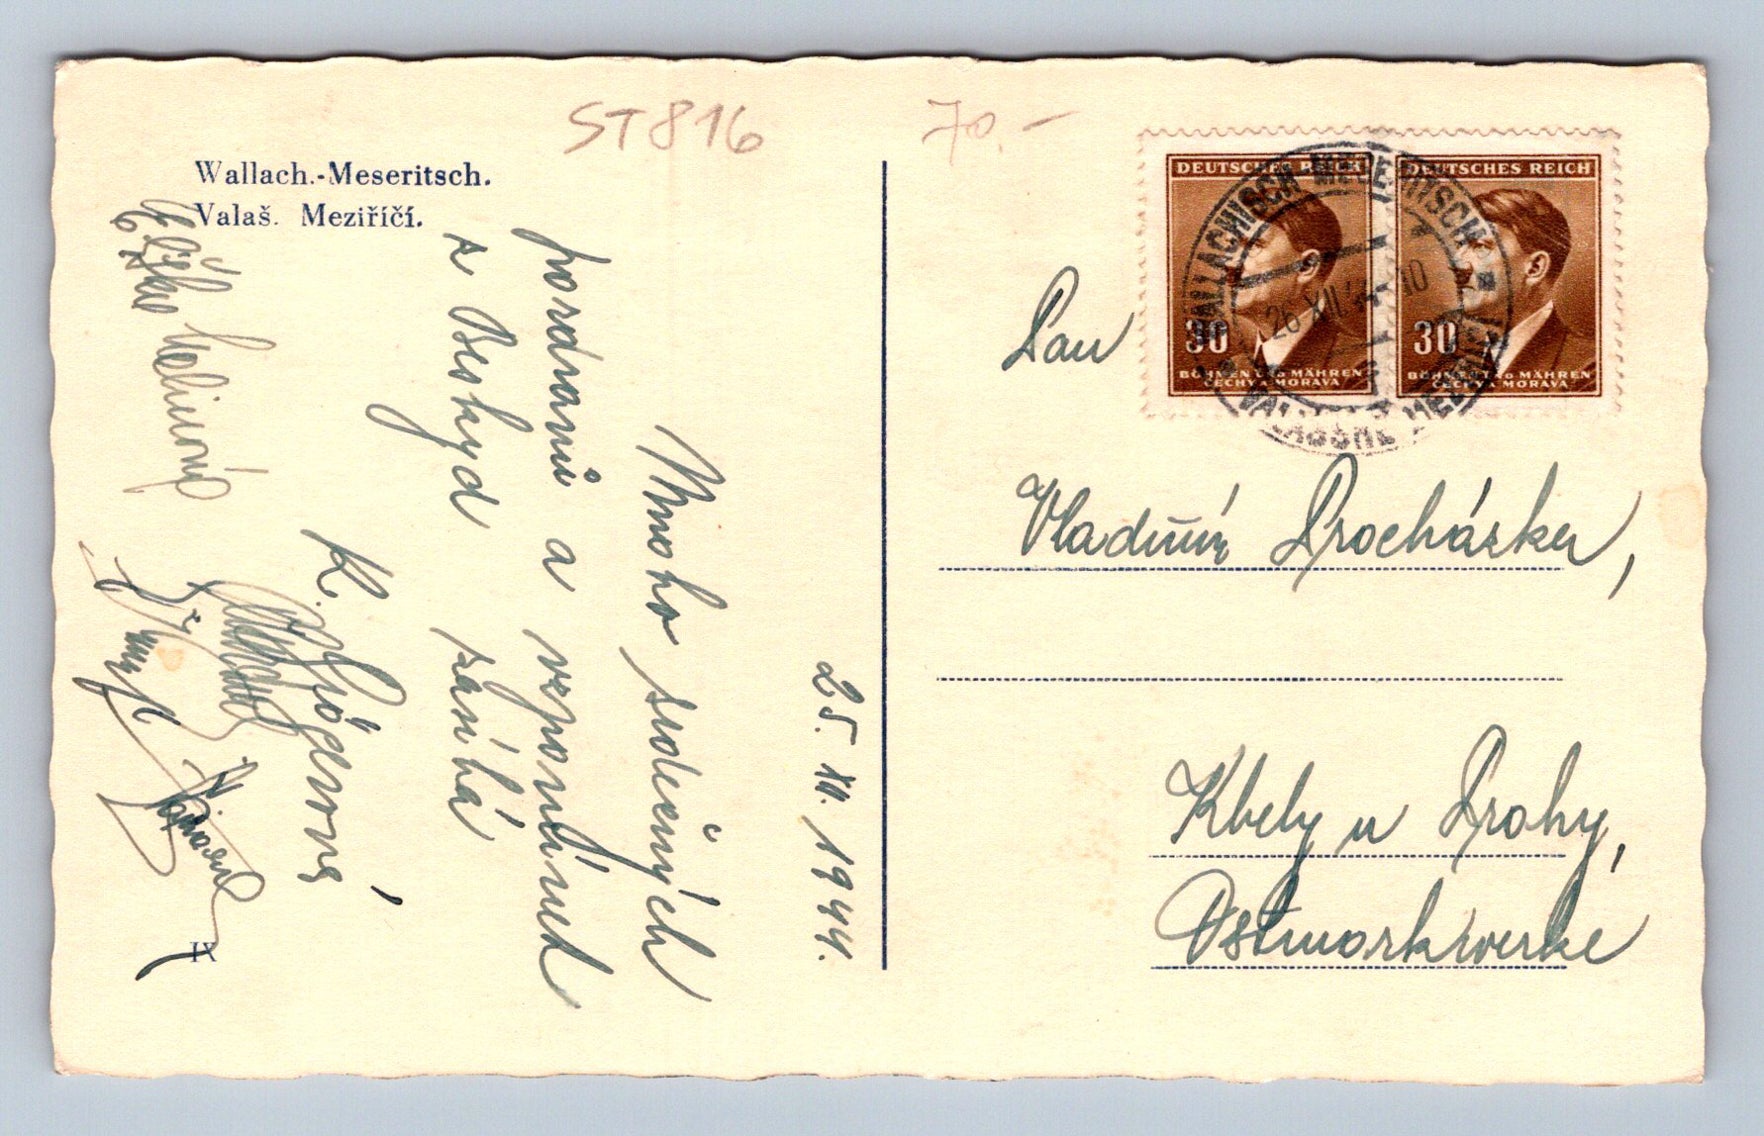 ST 816
70.-
Wallach.-Meseritsch.
Valaš. Meziříčí.
25. XII. 1944.
Mnoho srdečných
pozdravů a vzpomínek
z Beskyd zasílá
K.
DEUTSCHES REICH
30
BÖHMEN UND MÄHREN
ČECHY A MORAVA
DEUTSCHES REICH
30
BÖHMEN UND MÄHREN
ČECHY A MORAVA
WALLACHISCH-MESERITSCH
26 XII 10
VALAŠSKÉ MEZIŘÍČÍ
Pan
Vladimír Procházka,
Kbely u Prahy,
Ostmarkwerke
IX